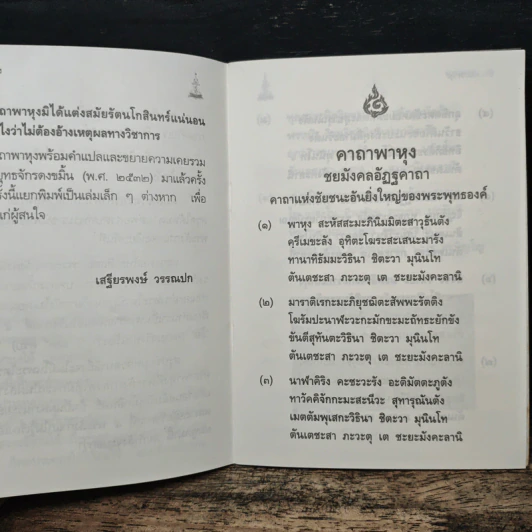 ถาพาหุงมิได้แต่งสมัยรัตนโกสินทร์แน่นอน
ไงว่าไม่ต้องอ้างเหตุผลทางวิชาการ
ถาพาหุงพร้อมคำแปลและขยายความเคยรวม
พุทธจักรดงขมิ้น (พ.ศ. ๒๕๓๒) มาแล้วครั้ง
รั้งนี้แยกพิมพ์เป็นเล่มเล็ก ๆ ต่างหาก เพื่อ
แก่ผู้สนใจ
เสฐียรพงษ์ วรรณปก
คาถาพาหุง
ชยมังคลอัฏฐคาถา
คาถาแห่งชัยชนะอันยิ่งใหญ่ของพระพุทธองค์
(๑) พาหุง สะหัสสะมะภินิมมิตะสาวุธันตัง
ครีเมขะลัง อุทิตะโฆระสะเสนะมารัง
ทานาทิธัมมะวิธินา ชิตะวา มุนินโท
ตันเตชะสา ภะวะตุ เต ชะยะมังคะลานิ
(๒) มาราติเรกะมะภิยุชฌิตะสัพพะรัตติง
โฆรัมปะนาฬะวะกะมักขะมะถัทธะยักขัง
ขันตีสุทันตะวิธินา ชิตะวา มุนินโท
ตันเตชะสา ภะวะตุ เต ชะยะมังคะลานิ
(๓) นาฬาคิริง คะชะวะรัง อะติมัตตะภูตัง
ทาวัคคิจักกะมะสะนีวะ สุทารุณันตัง
เมตตัมพุเสกะวิธินา ชิตะวา มุนินโท
ตันเตชะสา ภะวะตุ เต ชะยะมังคะลานิ